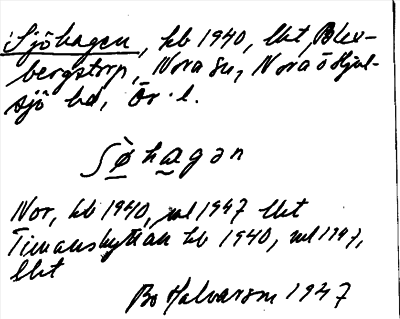 Sjöhagen, hb 1940, lht, Blex-
bergstorp, Nora sn, Nora o Hjul-
sjö hd, Ör. l.
Nor, hb 1940, ml 1947 lht
Timanshyttan hb 1940, ml 1947,
lht
Bo Halvarson 1947